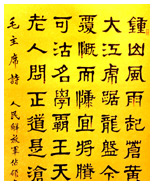 鍾山風雨起蒼黃
大江虎踞龍盤今
覆慨而慷宜將剩
可沽名學霸王天
老人間正道是滄
毛主席詩 人民解放軍佔領